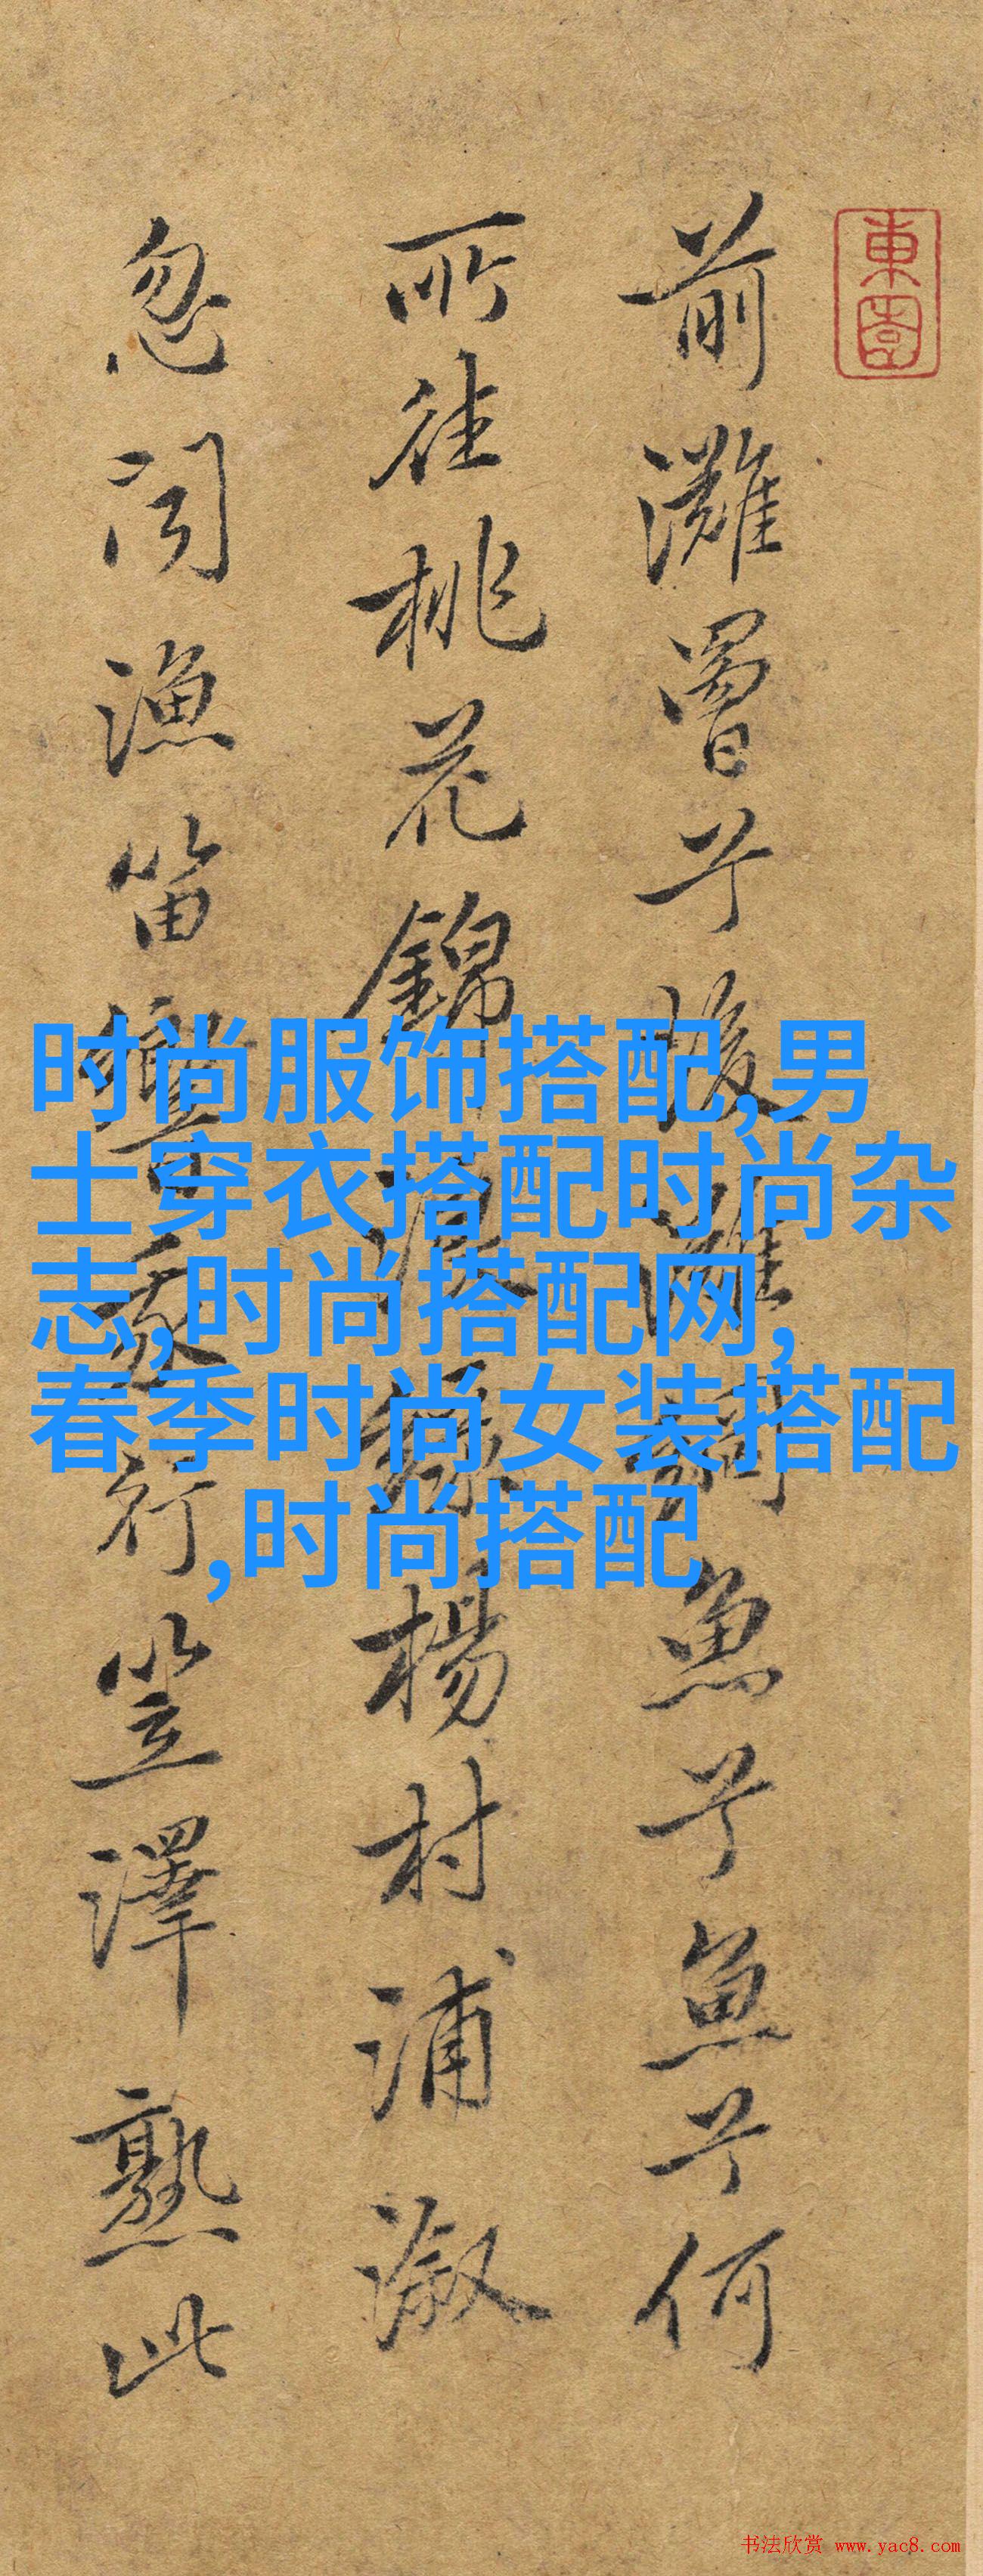 前灘罾兮後灘網魚兮魚兮何
所往桃花錦浪綠楊村浦漵
忽聞漁笛響我行笠澤熟此
时尚服饰搭配,男
士穿衣搭配时尚杂
志,时尚搭配网,
春季时尚女装搭配
,时尚搭配
书法欣赏 www.yac8.com